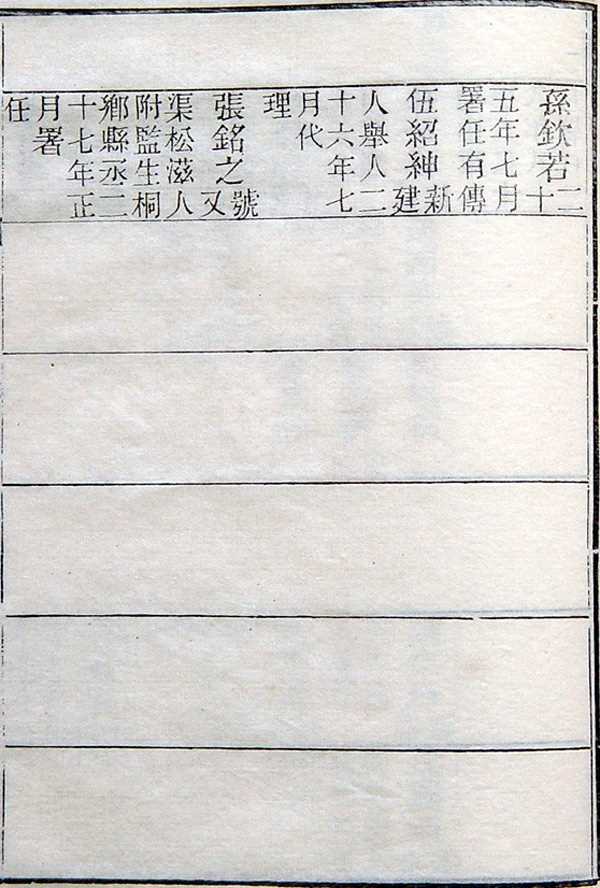 孫欽若二十
五年七月
署任有傳
伍紹紳新建
人舉人二
十六年七
月代
理
張銘之號又
渠松滋人
附監生桐
鄉縣丞二
十七年正
月署
任